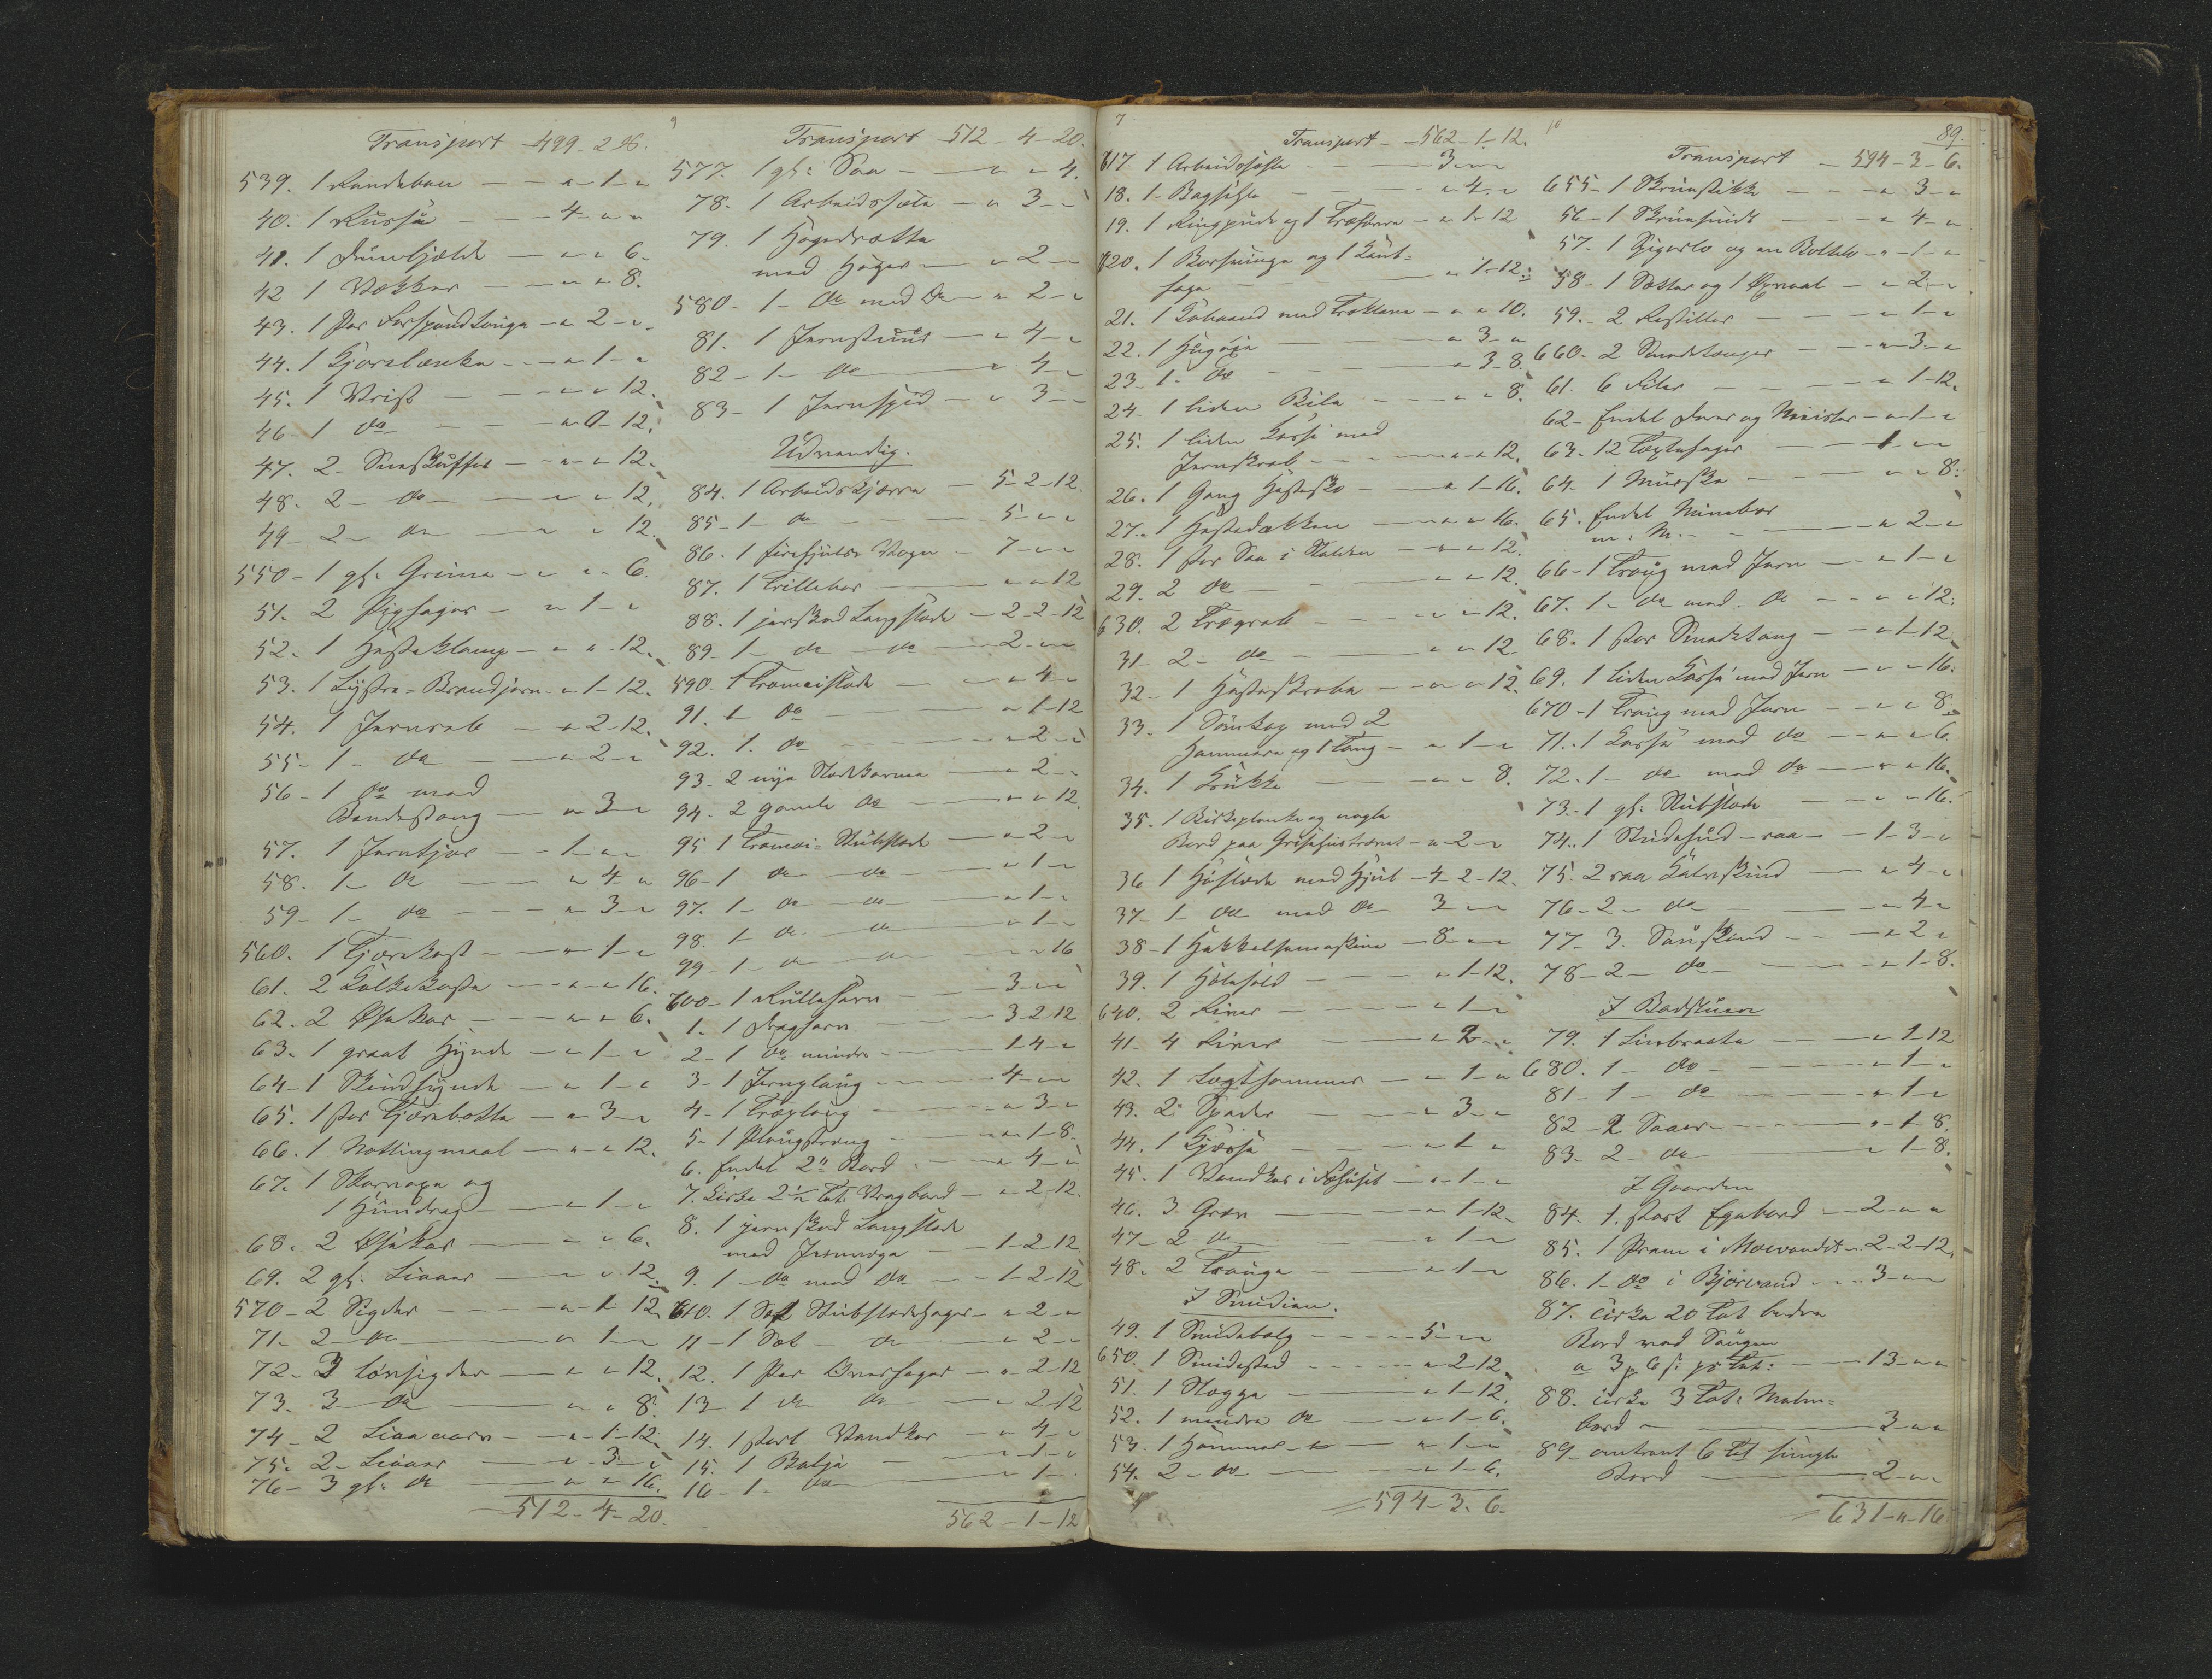 Transport - 499 - 2 - 16.
539. 1 Randebau - " - 1 - "
40. 1 Russü - 4 - " - "
41. 1 - " - " 6.
42 1 Vækker - " - " 8.
43. 1 Par - " 2 - "
44. 1 Hjørelænke - " 1 - "
45. 1 Vrist - " - " 12.
46 - 1 do - " 0 - 12.
47. 2 - Sneskuffer - " - " 12.
48. 2 - do - " - " 12.
49 - 2 - do - " - " 12.
550 - 1 gl: Grime - " - " 6.
51. 2 - " 1 - "
52. 1 Hesteklamp - " - " 12.
53. 1 Lystre = Brandjern - " 1 - 12.
54. 1 Jernrab - " 2 - 12.
55 - 1 - do - " 2 - "
56 - 1 do med
Bendestang - " 3 - "
57. 1 Jerntjor - 1 - " - "
58. 1 - do - " 4 - "
59 - 1 - do - " 3 - "
560. 1 Tjærekost - " - 1 - "
61. 2 Kalkekoste - " - " 16.
62. 2 Øsekar - " - " 6.
63. 1 graat Hynde - " 1 - "
64 - 1 Skindhynde - " 1 - "
65. 1 stor Tjærebøtte - " 3 - "
66. 1 Nottingmaal - " - " 12.
67. 1 og
1 - " 1 - "
68. 2 Øsekar - " - " 6.
69. 2 gl: Liaaer - " - " 12.
570 - 2 Sigder - " - 1 - 12
71. 2 - do - " 1 - "
72 - 3 Løvsigder - " - " 12.
73. 3 do - " - " 8.
74 - 2 - " - 1 - 12.
75. 2 - Liaaer - " 3 - "
76 - 3 gl: do - " - " 16.
512 - 4 - 20.
Transport - 512 - 4 - 20.
577. 1 gl: Saa - " - " 4.
78. 1 Arbeidssæle - " 3 - "
79. 1 Høgedrætte
med Høger - " 2 - "
580 - 1 - do med do - " 2 - "
81. 1 Jernstüür - " 4 - "
82 - 1 - do - " 4 -
83 - 1 Jernspid - " 3 - "
Udvendig.
84. 1 Arbeidskjærre - 5 - 2 - 12.
85 - 1 do - 5 - " - "
86. 1 firehjulet Vogn - 7 - " - "
87. 1 Trillebør - " - " 12
88. 1 jernskoed Langslæde - 2 - 2 - 12
89 - 1 - do do - 2 - " - "
590. 1 Tromøislæde - " 4 - "
91. 1 do - " 1 - 12
92. 1. do - " 2 - "
93 - 2 nye - " 2 - "
94. 2 gamle do - " - " 12.
95 1 Tromøi = Stübslæde - " 2 - "
96 - 1 do do - " 1 - "
97. 1 - do do - " 1 - "
98. 1 do do - " 1 -
99 - 1 - do do - " - " 16
600 - 1 Rulleharv - 3 - " - "
1. 1 Dragharv - 3 - 2 - 12
2 - 1 do mindre - 1 - 4 - "
3 - 1 Jernploüg - 4 - " - "
4 - 1 Træploüg - " 3 - "
5 - 1 - " 1 - 8.
6. Endel 2" Bord - " 4 - "
7. Cirka 2½ Tol. Vragbord - " 2 - 12.
8. 1 jernskoed Langslæde
med - 1 - 2 - 12.
9. 1 - do med do - 1 - 2 - 12
610. 1 Sæt Stübslædehager - " 2 - "
11 - 1 Sæt do - " 2 - "
12. 1 Par - " 2 - 12
13 - 1 do do - 2 - 12
14. 1 stort Vandkar - " 4 - "
15. 1 Balje - " 1 - "
16 - 1 - do - " 1 -
562 - 1 - 12
Transport - 562 - 1 - 12.
617. 1 Arbeidssæle - 3 - " - "
18. 1 - Bagsele - " 4 - "
19. 1 Ringpude og 1 - " 1 - 12
620. 1 og 1
- " 1 - 12.
21. 1 med - " - " 10.
22. 1 Hügøxe - " 3 - "
23 - 1 - do - " 3 - 8.
24 - 1 liden Bile - " - " 8.
25. 1 liden Kasse med
Jernskrab - " - " 12.
26. 1 Gang Hestesko - " 1 - 16.
27. 1 Hestedækken - " - " 16.
28. 1 stor Saa i Stalden - " - " 12.
29. 2 do - " - " 12.
630. 2 Trægreb - " - " 12.
31 - 2 - do - " - " 12
32 - 1 Hesteskrabe - " - " 12.
33. 1 med 2
Hammere og 1 Tang - " 1 - "
34. 1 Krükke - " - " 8.
35. 1 Birkeplanke og nogle
Bord paa - " 2 - "
36 1 Høslæde med Hjül - 4 - 2 - 12.
37 - 1 do med do 3 - " - "
38 - 1 Hakkelsemaskine - 8 - " - "
39. 1 - " 1 - 12.
640. 2 River - " 1 - "
41 - 4 River - " 2 - "
42. 1 - " 1 - "
43. 2 Spader - " 3 - "
44. 1 - " 1 - "
45. 1 Vandkar i Fæhüset - " 1 - "
46. 3 Greb - " 1 - 12.
47 - 2 do - " 1 - "
48. 2 Trauge - " 1 - "
I Smidien.
49. 1 Smidebælg - 5 - " - "
650. 1 Smidested - " 2 - 12
51. 1 Slægge - " 1 - 12
52. 1 mindre do - " 1 - 6.
53. 1 Hammer - " 1 - "
54. 2 - do - " 1 - 6.
594 - 3 - 6.
89.
Transport - 594 - 3 - 6.
655 - 1 Skrüestikke - " 3 - "
56 - 1 Skrüesnidt - " 4 - "
57. 1 og en - " 1 - "
58 - 1 Sætter og 1 - " 2 - "
59. - 2 - " 1 - "
660. 2 Smedetænger - " 3 - "
61. 6 Filer - " 1 - 12.
62 - Endel og - " 1 - "
63. 12 - 1 - " - "
64 - 1 Mürske - " - " 8.
65. Endel Minebor
m: M. - " 2 - "
66 - 1 Traug med Jern - " 1 - "
67. 1 - do med do - " - " 12.
68. 1 stor Smedetang - " 1 - 12
69. 1 liden Kasse med Jern - " - " 16.
670 - 1 Traug med Jern - " - " 8.
71. 1 Kasse med do - " - " 6.
72. 1 - do med do - " - " 16.
73. - 1 gl: Stübslæde - " - " 16.
74. 1 Studehud - raa - 1 - 3 - "
75. 2 raa Kalveskind - " 4 - "
76 - 2 - do - " 4 - "
77 - 3. Saüskind - " 2 -
78 - 2 - do - " 1 - 8.
I Badstuen
79. 1 Linbraate - " 1 - 12
680. 1 - do - " 1 - "
81 - 1 - do - " 1 - "
82 - 2 Saaer - " 1 - 8.
83 - 2 - do - " 1 - 8.
I Gaarden
84. 1. stort Egebord - 2 - " - "
85. 1 Pram i Moevandet - 2 - 2 - 12.
86. 1 - do i Bjorvand - 3 - " - "
87. cirka 20 Tolt bedre
Bord ved Saugen
a 3 - 13 - " - "
88. cirka 3 Tolt: Malm =
bord - 3 - " - "
89 - omtrent 6 Tolt
Bord - 2 - " - "
631 - " - 16